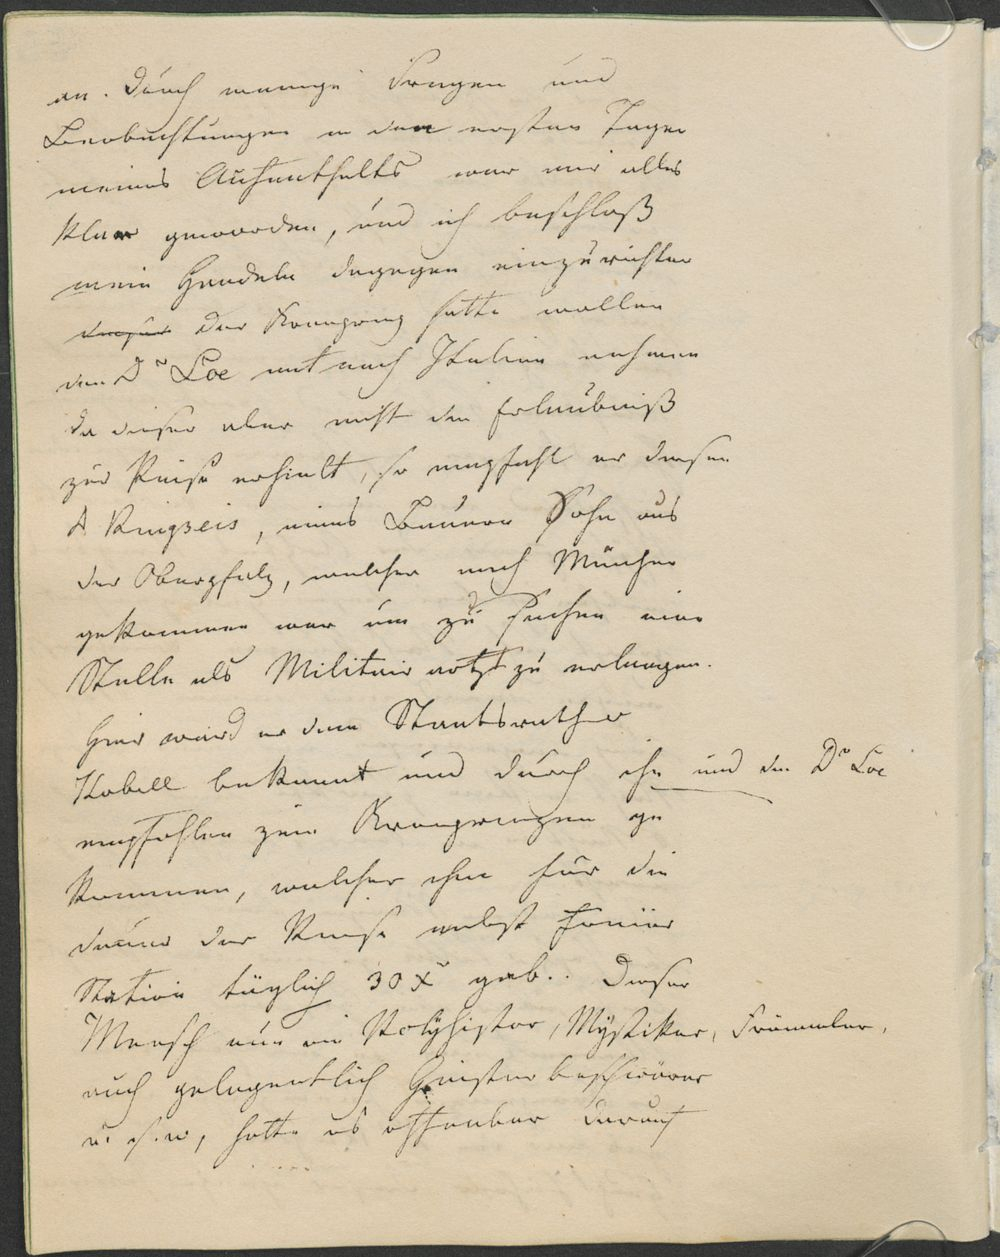 an. Durch wenige Fragen und
Beobachtungen in den ersten Tagen
meines Aufenthalts war mir alles
klar geworden, und ich beschloß
mein Handeln dagegen einzurichten
Der Kronprinz hatte wollen
den Dr Loe mit nach Italien nehmen
da dieser aber nicht die Erlaubniß
zur Reise erhielt, so empfahl er diesen
Ringseis, eines Bauern Sohn aus
der Oberpfalz, welcher nach München
gekommen war um zu suchen eine
Stelle als Militair arzt zu erlangen.
Hier ward er dem Staatsrathe
Kobell bekannt und durch ihn und den Dr Loe
empfohlen zum Kronprinzen ge
kommen, welcher ihm für die
Dauer der Reise nebst freier
Station täglich 30 x gab.. Dieser
Mensch nun ein Polyhistor, Mystiker, Frömmler,
auch gelegentlich Geisterbeschwörer
u. s. w, hatte es offenbar darauf